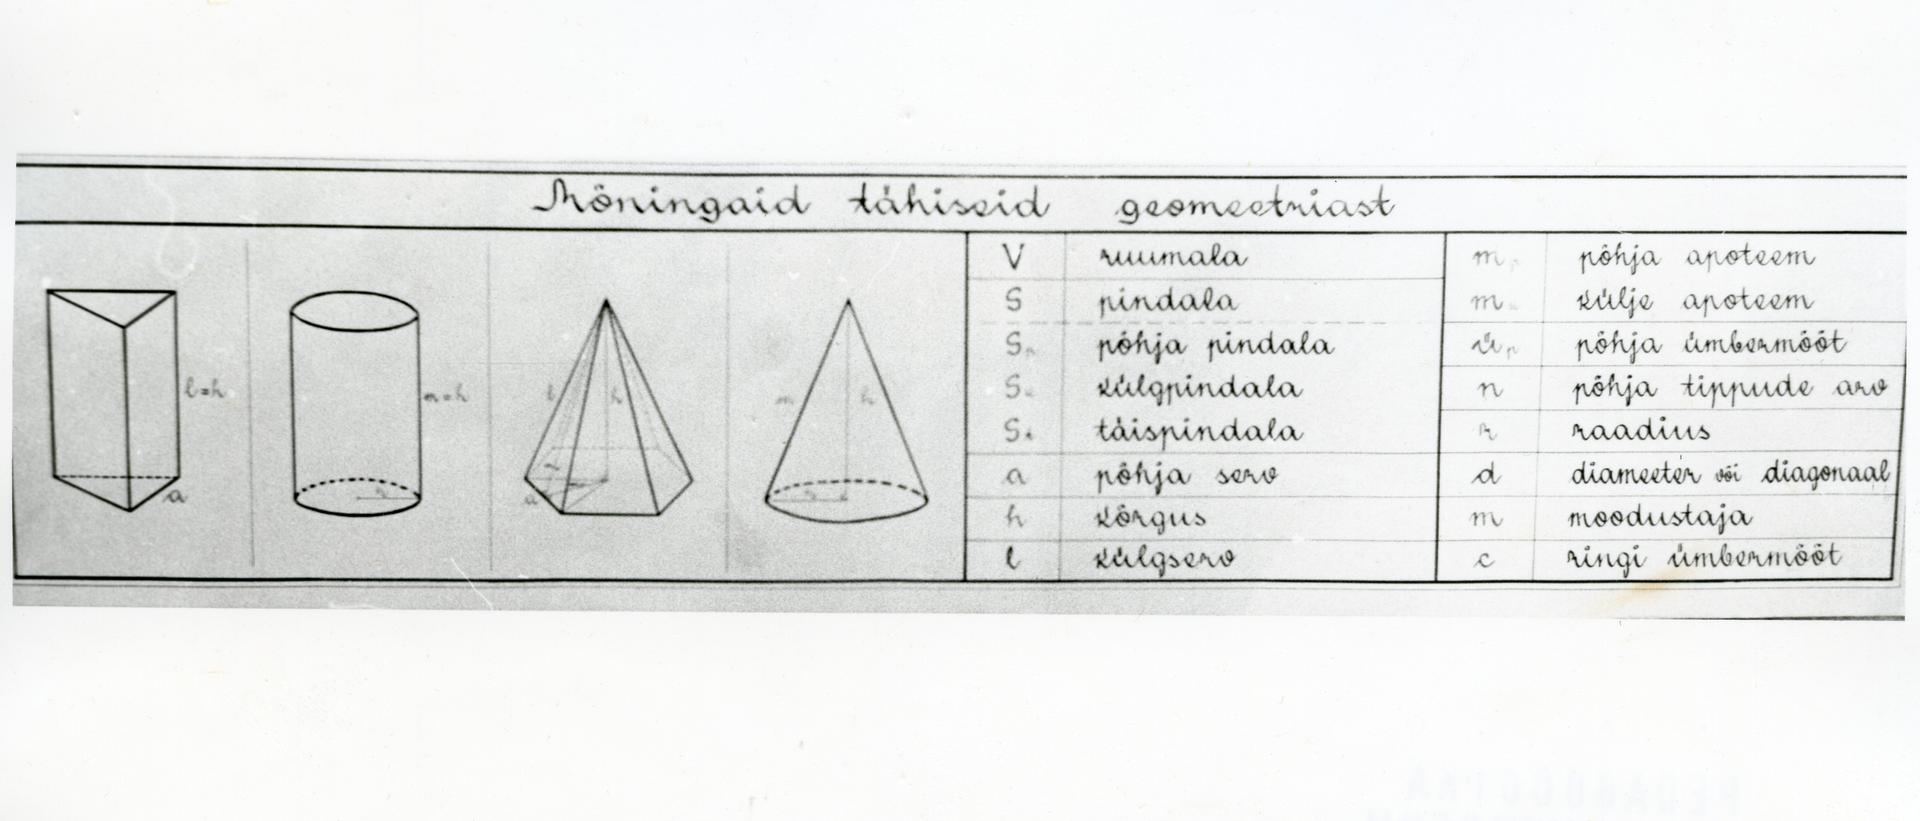 Mõningaid tähiseid geomeetriast
l=h
a
m=h
r
l
h
a
m
h
r
V ruumala
S pindala
Sp põhja pindala
Sk külgpindala
St täispindala
a põhja serv
h kõrgus
l külgserv
m põhja apoteem
m külje apoteem
üp põhja ümbermõõt
n põhja tippude arv
r raadius
d diameeter või diagonaal
m moodustaja
c ringi ümbermõõt